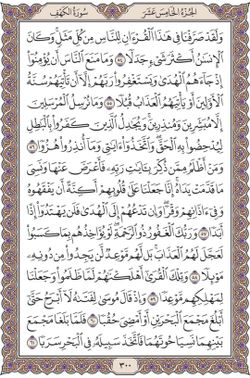 الجزء الخامس عشر سورة الكهف
ولقد صرفنا في هذا القرءان للناس من كل مثل وكان
الإنسن أكثر شيء جدلا ٥٤ وما منع الناس أن يؤمنوا
إذ جاءهم الهدى ويستغفروا ربهم إلا أن تأتيهم سنة
الأولين أو يأتيهم العذاب قبلا ٥٥ وما نرسل المرسلين
إلا مبشرين ومنذرين ويجدل الذين كفروا بالبطل
ليدحضوا به الحق واتخذوا ءايتي وما أنذروا هزوا ٥٦
ومن أظلم ممن ذكر بءايت ربه فأعرض عنها ونسي
ما قدمت يداه إنا جعلنا على قلوبهم أكنة أن يفقهوه
وفي ءاذانهم وقرا وإن تدعهم إلى الهدى فلن يهتدوا إذا
أبدا ٥٧ وربك الغفور ذو الرحمة لو يؤاخذهم بما كسبوا
لعجل لهم العذاب بل لهم موعد لن يجدوا من دونه
موئلا ٥٨ وتلك القرى أهلكنهم لما ظلموا وجعلنا
لمهلكهم موعدا ٥٩ وإذ قال موسى لفتىه لا أبرح حتى
أبلغ مجمع البحرين أو أمضي حقبا ٦٠ فلما بلغا مجمع
بينهما نسيا حوتهما فاتخذ سبيله في البحر سربا ٦١
٣٠٠